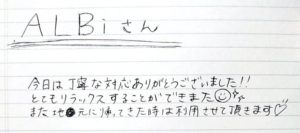 ALBiさん
今日は丁寧な対応ありがとうございました!!
とてもリラックスすることができまた
また地元に帰ってきた時は利用させて頂きます♡